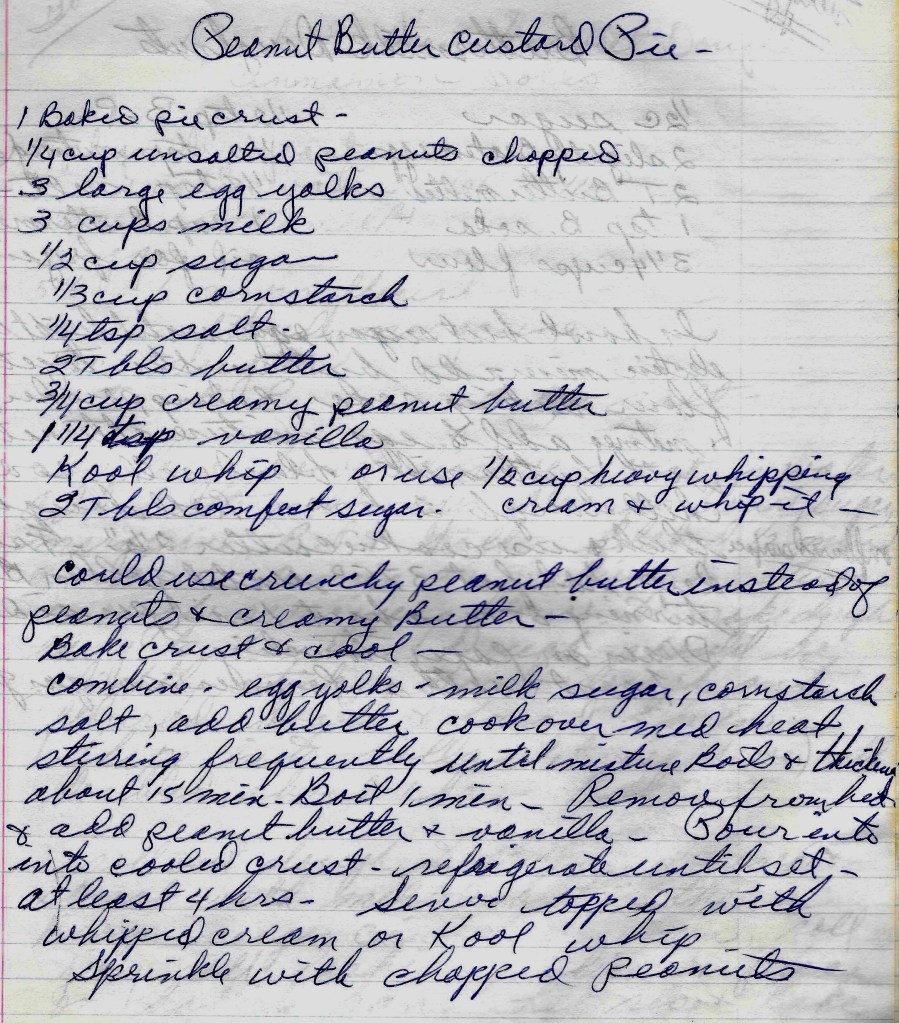 Peanut Butter Custard Pie -
1 Baked pie crust -
1/4 cup unsalted peanuts chopped
3 large egg yolks
3 cups milk
1/2 cup sugar
1/3 cup cornstarch
1/4 tsp salt -
2 Tbls butter
3/4 cup creamy peanut butter
1 1/4 tsp vanilla
Kool whip or use 1/2 cup heavy whipping
2 Tbls comfect sugar - cream & whip it -
could use crunchy peanut butter instead of
peanuts & creamy Butter -
Bake crust & cool -
combine - egg yolks - milk sugar, cornstarch
salt, add butter cook over med heat,
stirring frequently until mixture Boils & thickens
about 15 min - Boil 1 min - Remove from heat
& add peanut butter & vanilla - Pour into
into cooled crust - refrigerate until set -
at least 4 hrs - Serve topped with
whipped cream or Kool whip
Sprinkle with chopped peanuts